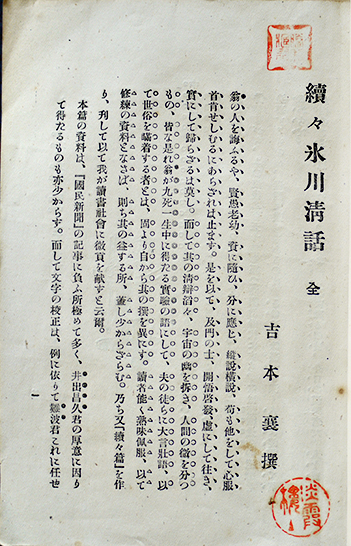 續々氷川淸話 全
吉本襄撰
翁の人を誨ふるや、賢愚老幼、資に隨ひ、分に應じ、縱說橫說、苟も他をして心服
首肯せしむるにあらざれは止まず。是を以て、及門の士、開悟啓發、虛にして往き、
實にして歸らざるは莫し。而して其の淸辯滔々、宇宙の幽を拆き、人間の微を分つ
もの、皆な是れ翁が九死一生中に得たる實驗の語にして、夫の徒らに大言壯語、以
て世俗を瞞着する者とは、固より自から其の撰を異にす。讀者能く熟味佩服、以て
修練の資料となさば、則ち其の益する所、蓋し少からざらむ。乃ち又『續々篇』を作
り、刊して以て我が讀書社會に微貢を獻すと云爾。
本篇の資料は、『國民新聞』の記事に負ふ所極めて多く、井出昌久君の厚意に因り
て得たるものも亦少からす。而して文字の校正は、例に依りて難波君これに任せ